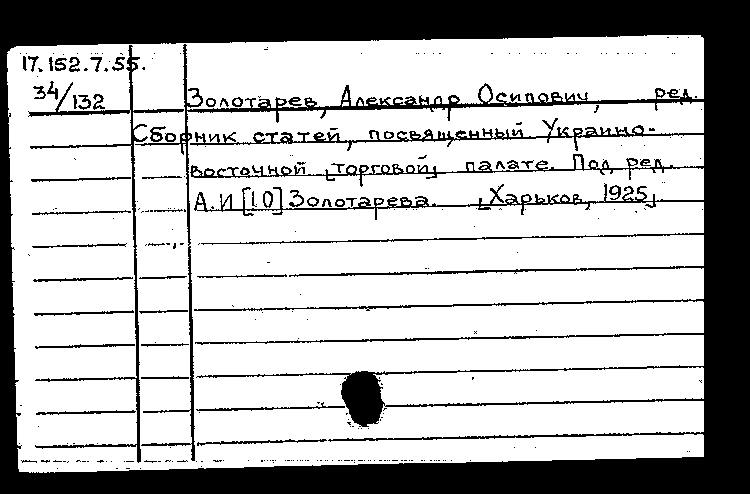 17.152.7.55.
34/132 Золотарев, Александр Осипович, ред.
Сборник статей, посвященный Украино-
восточной [торговой] палате. Под ред.
А.И [10] Золотарева. [Харьков, 1925].